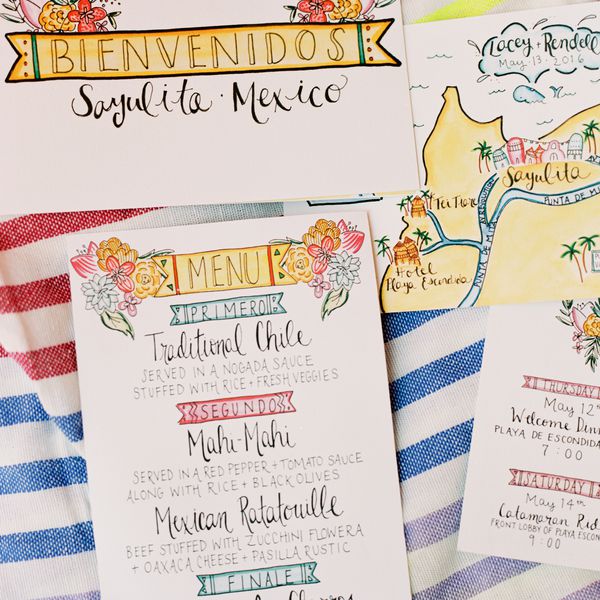 BIENVENIDOS
Sayulita · Mexico
Lacey + Rendell
May 13, 2016
Sayulita
PUNTA DE MI
PUNTA DE MITA
Hotel
Playa Escondida
MENU
PRIMERO
Traditional Chile
SERVED IN A NOGADA SAUCE
STUFFED WITH RICE + FRESH VEGGIES
SEGUNDO
Mahi-Mahi
SERVED IN A RED PEPPER + TOMATO SAUCE
ALONG WITH RICE + BLACK OLIVES
Mexican Ratatouille
BEEF STUFFED WITH ZUCCHINI FLOWERA
+ OAXACA CHEESE + PASILLA RUSTIC
FINALE
THURSDAY
May 12th
Welcome Dinn
PLAYA DE ESCONDIDA
7:00
SATURDAY
May 14th
Catamaran Rid
FRONT LOBBY OF PLAYA ESCON
9:00